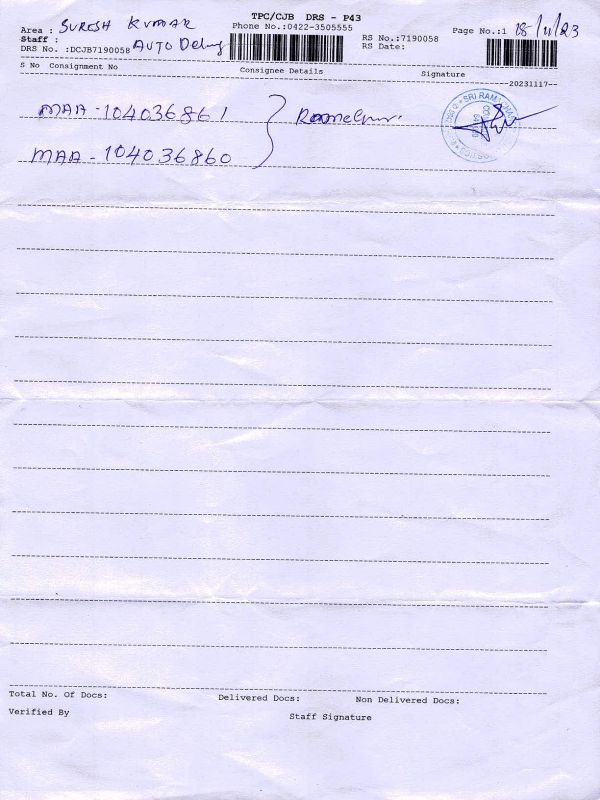 TPC/CJB DRS - P43
Area : SURESH KUMAR
Phone No.:0422-3505555
Page No.:1 18/11/23
Staff :
RS No.:7190058
DRS No. :DCJB7190058 AUTO
RS Date:
S No Consignment No Consignee Details Signature
20231117
MAA - 104036861
MAA - 104036860
SRI RAMA
Total No. Of Docs: Delivered Docs: Non Delivered Docs:
Verified By Staff Signature